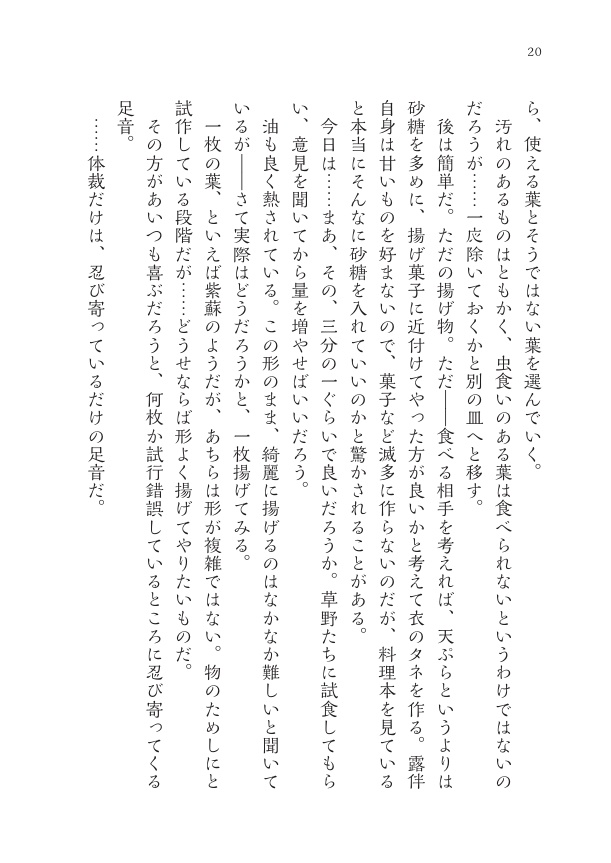 20
ら、使える葉とそうではない葉を選んでいく。
汚れのあるものはともかく、虫食いのある葉は食べられないというわけではないの
だろうが……一応除いておくかと別の皿へと移す。
後は簡単だ。ただの揚げ物。ただ――食べる相手を考えれば、天ぷらというよりは
砂糖を多めに、揚げ菓子に近付けてやった方が良いかと考えて衣のタネを作る。露伴
自身は甘いものを好まないので、菓子など滅多に作らないのだが、料理本を見ている
と本当にそんなに砂糖を入れていいのかと驚かされることがある。
今日は……まあ、その、三分の一ぐらいで良いだろうか。草野たちに試食してもら
い、意見を聞いてから量を増やせばいいだろう。
油も良く熱されている。この形のまま、綺麗に揚げるのはなかなか難しいと聞いて
いるが――さて実際はどうだろうかと、一枚揚げてみる。
一枚の葉、といえば紫蘇のようだが、あちらは形が複雑ではない。物のためしにと
試作している段階だが……どうせならば形よく揚げてやりたいものだ。
その方があいつも喜ぶだろうと、何枚か試行錯誤しているところに忍び寄ってくる
足音。
……体裁だけは、忍び寄っているだけの足音だ。